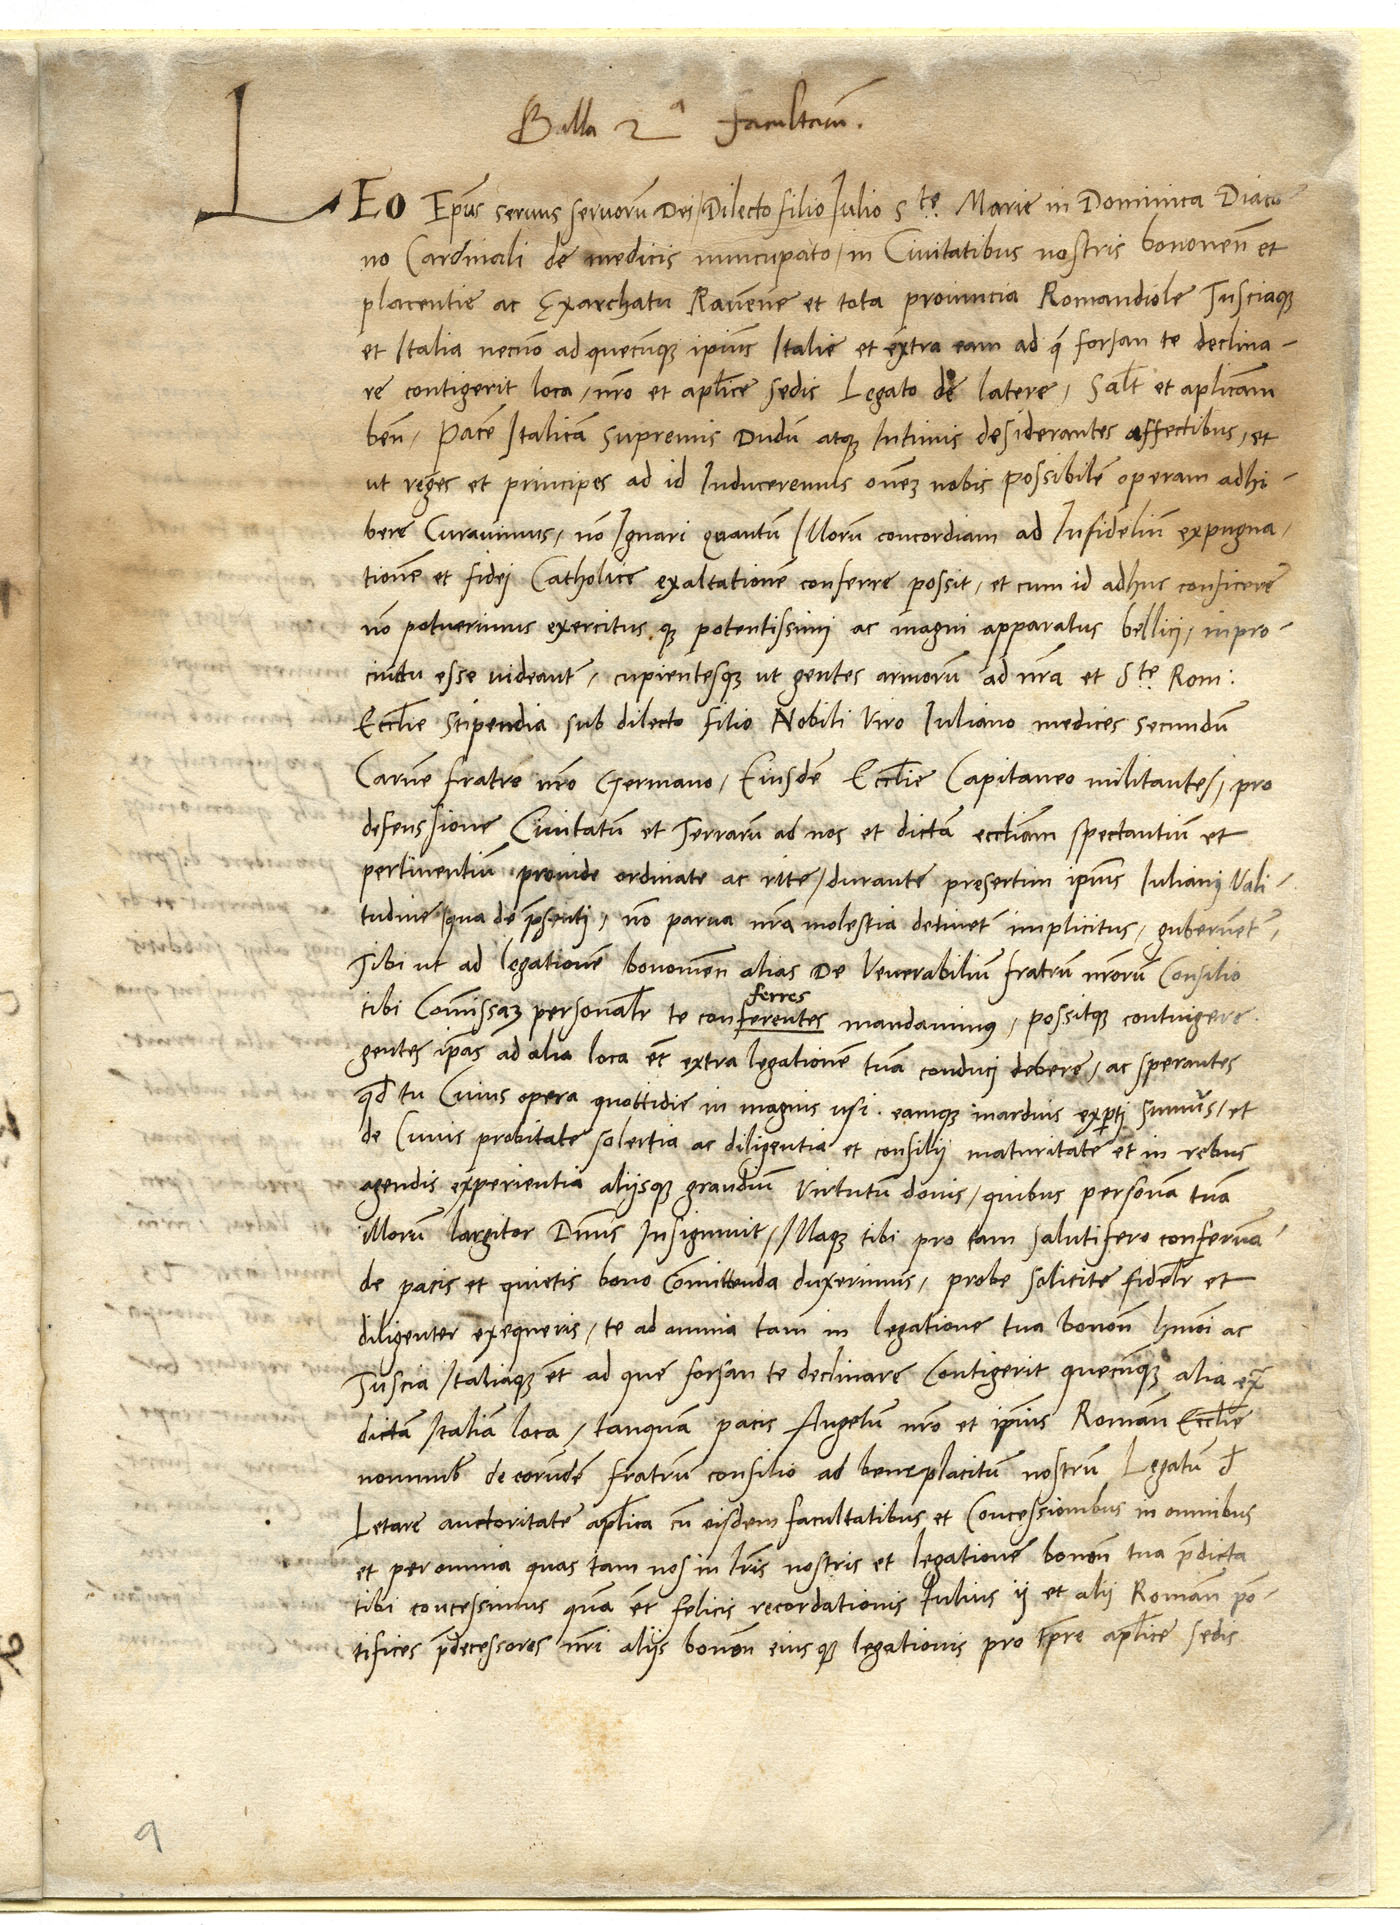 Bulla 2ᵃ facultatum.
LEO Ep̄us seruus seruorū Dei / Dilecto filio Iulio Sᵗᵉ. Marie in Dominica Diaco-
no Cardinali de medicis nuncupato / in Ciuitatibus nostris bononen̄ et
placentie ac Exarchatu Rauenne et tota prouincia Romandiole Tusciaqꝫ
et Italia necnō ad quecūqꝫ ip̄ius Italie et extra eam ad q̄ forsan te declina-
re contigerit loca / nr̄o et ap̄lice sedis Legato de latere / Salt̄ et aplicam
ben̄ / Pacē Italicā supremis Dudū atqꝫ Intimis desiderantes affectibus / et
ut reges et principes ad id Induceremus om̄eꝫ nobis possibilē operam adhi-
bere Curauimus / nō Ignari quantū Illorū concordiam ad Infideliū expugna-
tionē et fidei Catholice exaltationē conferre possit / et cum id adhuc conficere
nō potuerimus exercitus qꝫ potentissimi ac magni apparatus bellici / inpro-
cinctu esse uideant̄ / cupientesqꝫ ut gentes armorū ad nr̄a et Sᵗᵉ Rom:
Eccl̄ie Stipendia sub dilecto filio Nobili Viro Iuliano medices secundū
Carnē fratre nr̄o Germano / Eiusdē Eccl̄ie Capitaneo militantes / pro
defenssione Ciuitatū et Terrarū ad nos et dictā eccl̄iam spectantiū et
pertinentiū prouide ordinate ac rite / durante presertim ip̄ius Iuliani Vali-
tudine qua de p̄senti / nō parua nr̄a molestia detinet̄ implicitus / gubernēt̄,
Tibi ut ad legationē bononien̄ alias De Venerabiliū fratrū nr̄orū Consilio
tibi Com̄issaꝫ personal̄r te conferentes ferres mandauimus / possitqꝫ contingere
gentes ip̄as ad alia loca et̄ extra legationē tuā conduci debere / ac sperantes
qd̄ tu Cuius opera quottidie in magnis usi. eamqꝫ inarduis exp̱ti sumus / et
de Cuius probitate solertia ac diligentia et consilij maturitate et in rebus
agendis experientia alijsqꝫ grandiū Virtutū donis / quibus personā tuā
illorū largitor Dn̄us Insigniuit / Illaqꝫ tibi pro tam salutifero conserua-
de pacis et quietis bono Com̄ittenda duxerimus / probe solicite fidel̄r et
diligenter exequeris / te ad omnia tam in legatione tua bonon̄ hm̄oi ac
Tuscia Italiaqꝫ et̄ ad que forsan te declinare Contigerit quecūqꝫ alia ex̄
dictā Italiā loca / tanquā pacis Angelū nr̄o et ip̄ius Roman̄ Eccl̄ie
nominib̄ de eorūdē fratrū consilio ad beneplacitū nostrū Legatū d̄
Letare auctoritate ap̄lica cū eisdem facultatibus et Concessionibus in omnibus
et per omnia quas tam nos in lr̄is nostris et legatione bonon̄ tua p̄dicta
tibi concessimus quā et̄ felicis recordationis Iulius ij et alij Roman̄ pō-
tifices p̄decessores nr̄i alijs bonon̄ eiusqꝫ legationis pro tp̄re ap̄lice sedis
9